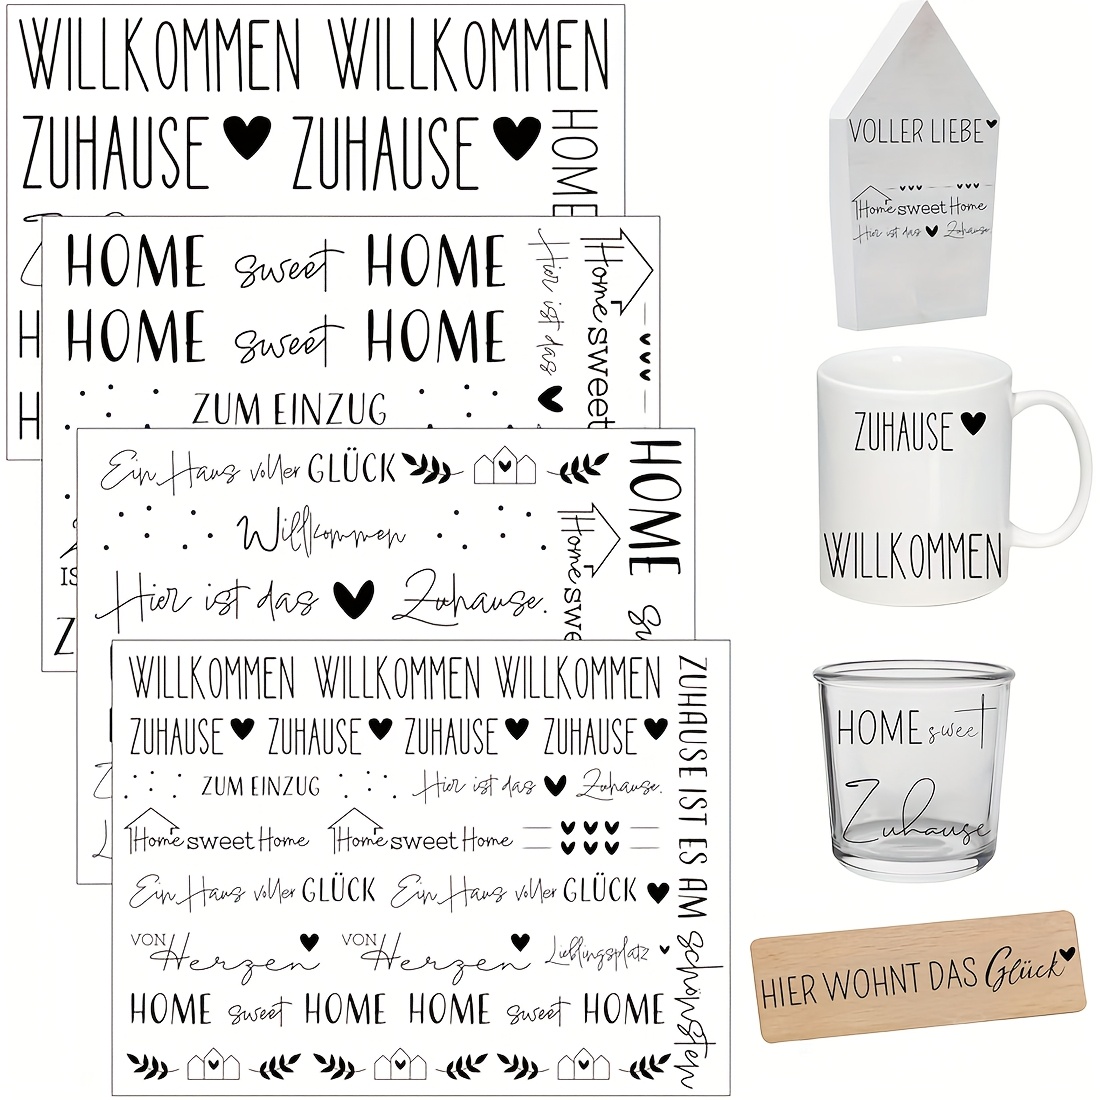 WILLKOMMEN WILLKOMMEN
ZUHAUSE ZUHAUSE
HOME
HOME sweet HOME
HOME sweet HOME
ZUM EINZUG
Hier ist das
Home sweet
Ein Haus voller GLÜCK
Willkommen
Hier ist das Zuhause.
HOME
Home
WILLKOMMEN WILLKOMMEN WILLKOMMEN
ZUHAUSE ZUHAUSE ZUHAUSE ZUHAUSE
ZUM EINZUG Hier ist das Zuhause.
Home sweet Home Home sweet Home
Ein Haus voller GLÜCK Ein Haus voller GLÜCK
VON Herzen VON Herzen Lieblingsplatz
HOME sweet HOME HOME sweet HOME
ZUHAUSE IST ES AM schönsten
VOLLER LIEBE
Home sweet Home
Hier ist das Zuhause
ZUHAUSE
WILLKOMMEN
HOME sweet
Zuhause
HIER WOHNT DAS Glück